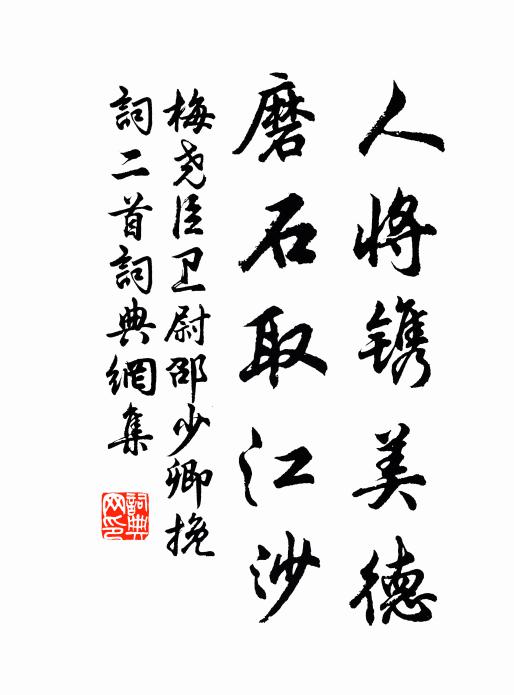 人将镌美德
磨石取江沙
梅尧臣卫尉邵少卿挽
詞二首詞典網集
詞典网印